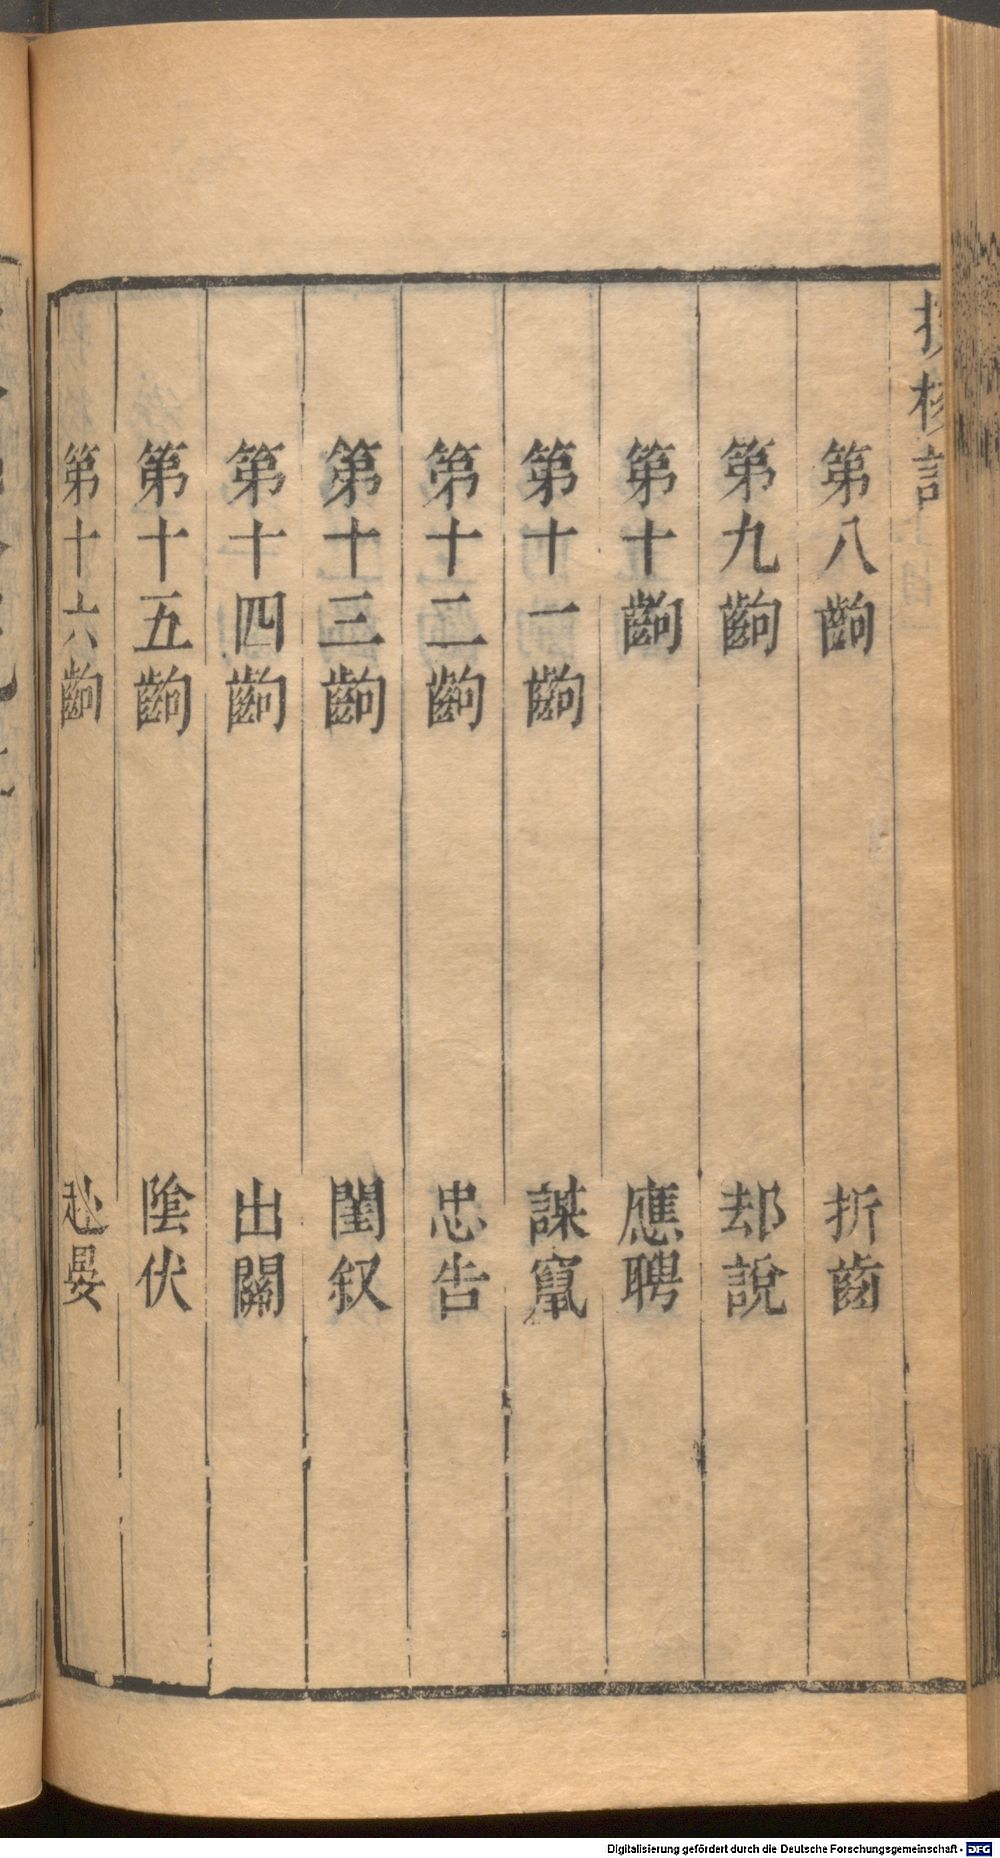 投梭記
第八齣 折齒
第九齣 却說
第十齣 應聘
第十一齣 謀竄
第十二齣 忠告
第十三齣 閨叙
第十四齣 出關
第十五齣 隂伏
第十六齣 赴晏
Digitalisierung gefördert durch die Deutsche Forschungsgemeinschaft - DFG